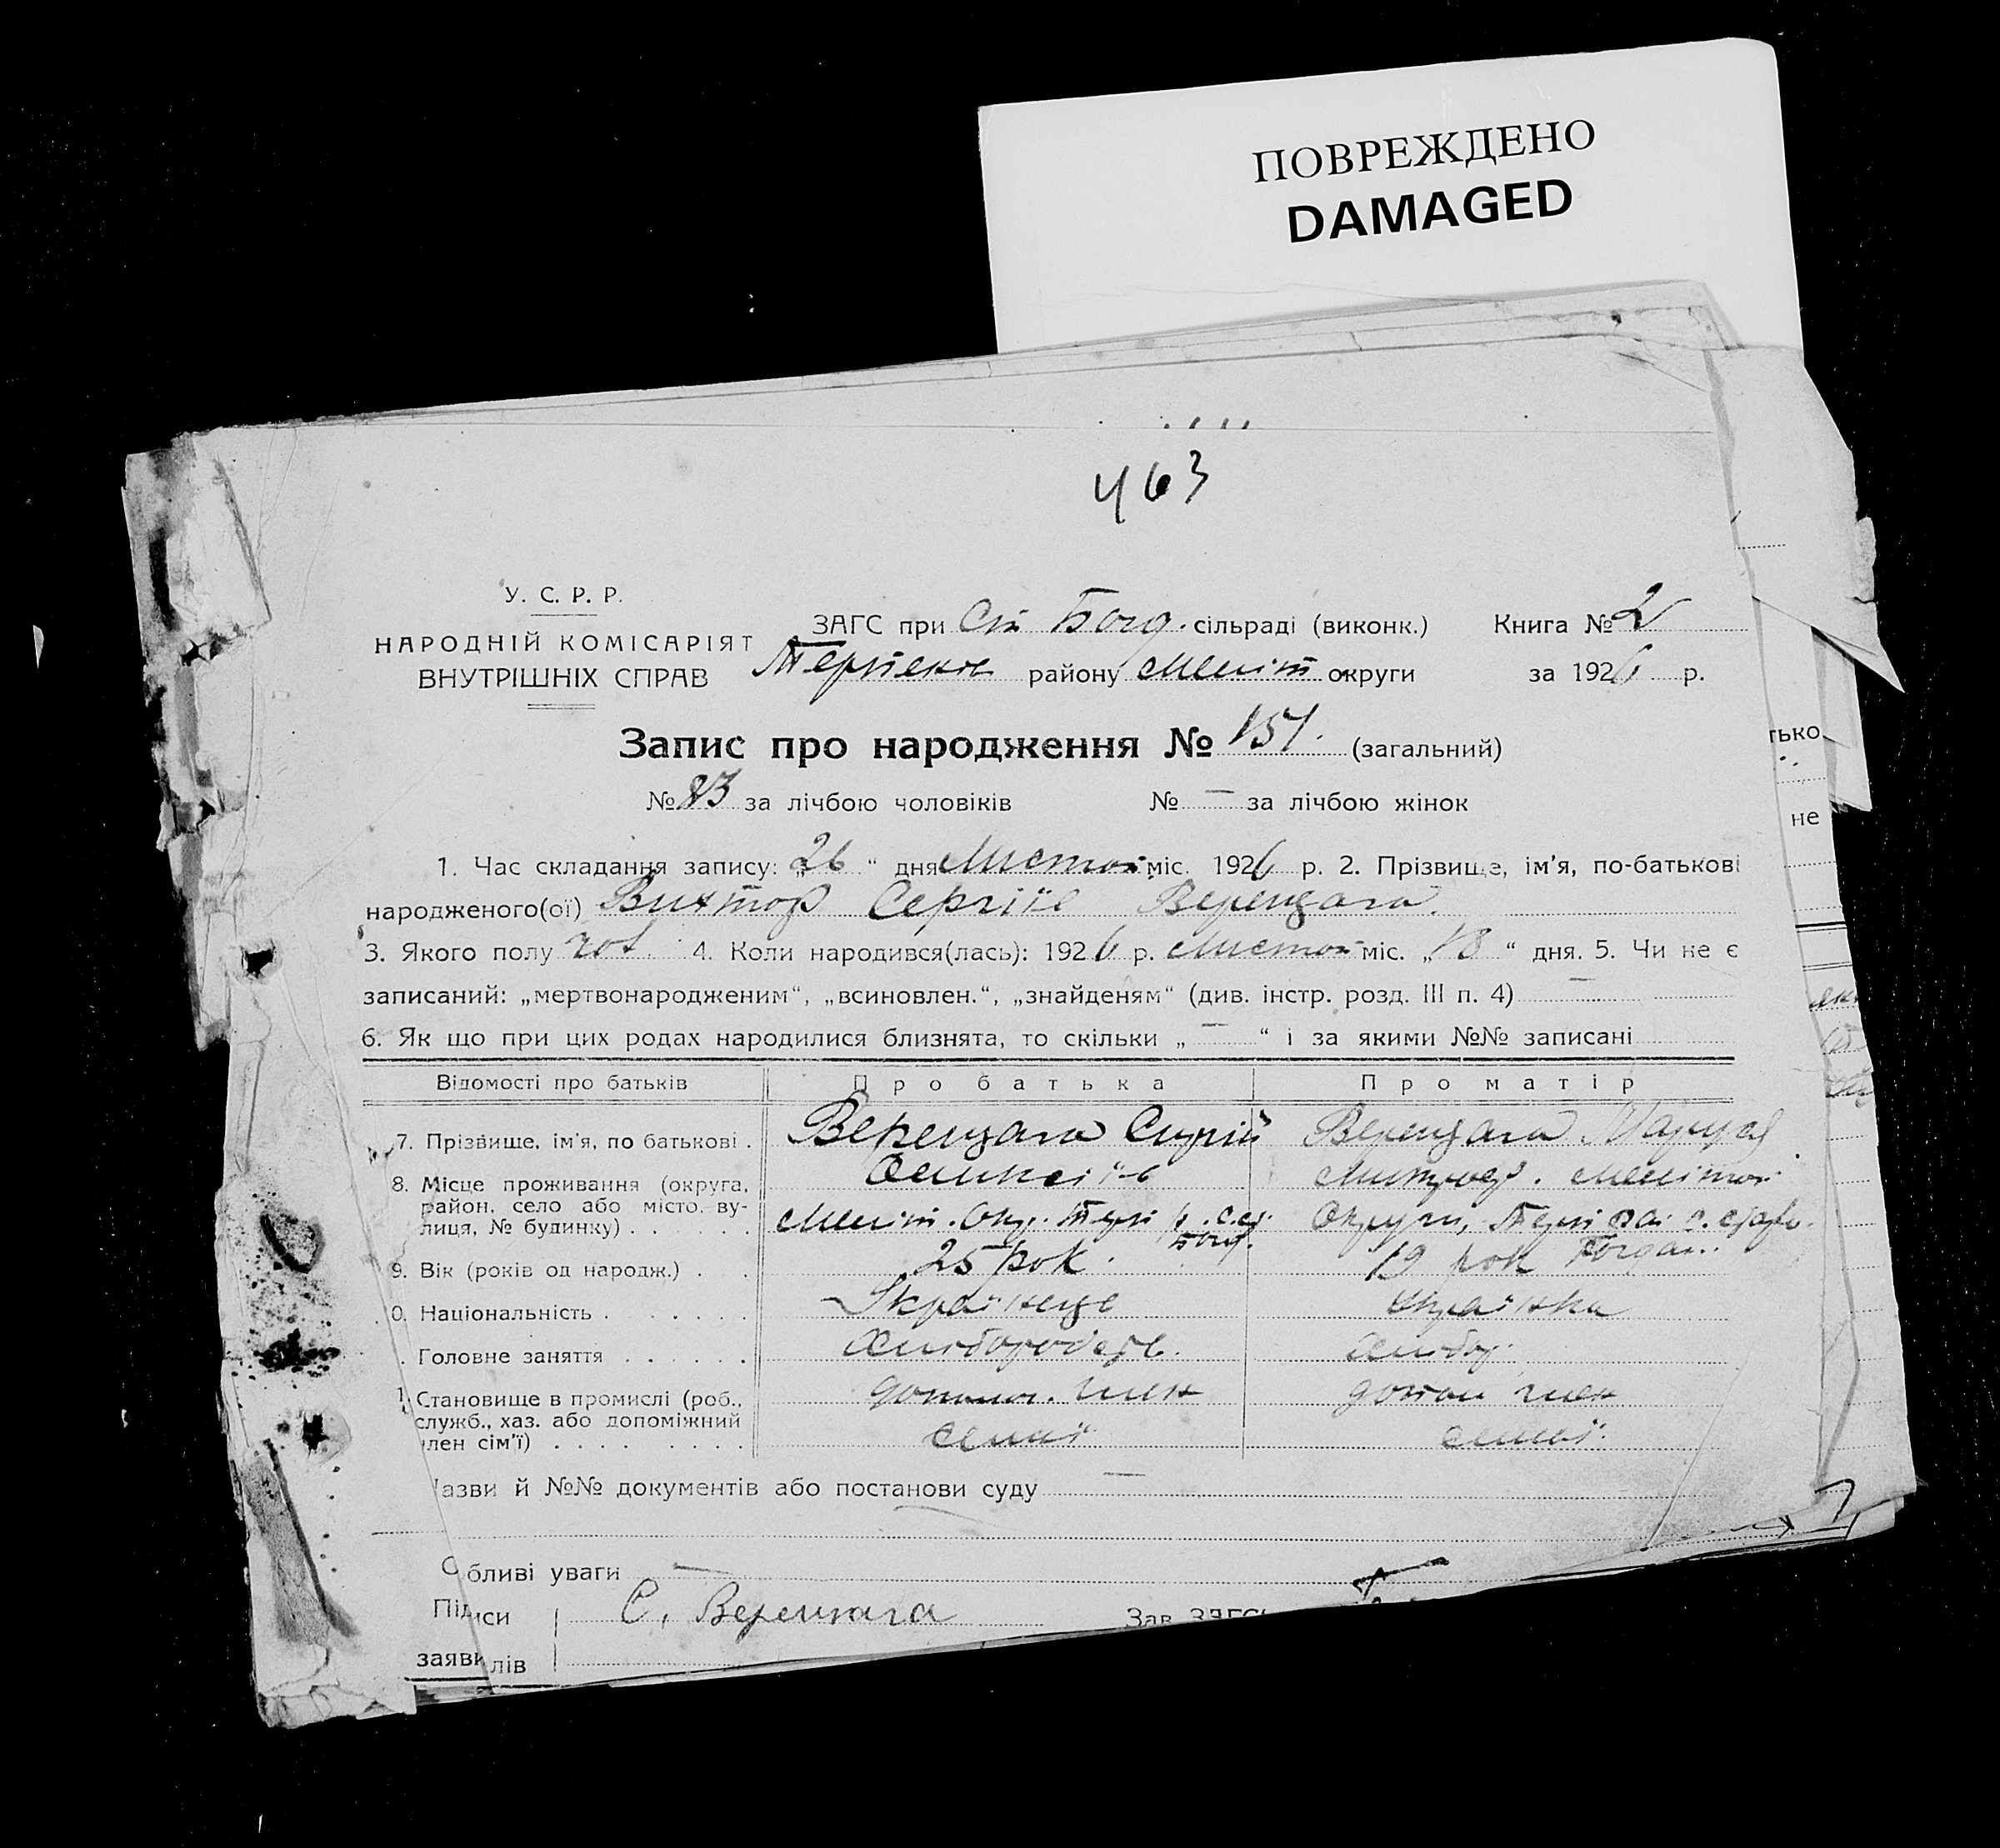 ПОВРЕЖДЕНО
DAMAGED
463
У. С. Р. Р.
НАРОДНІЙ КОМІСАРІЯТ
ВНУТРІШНІХ СПРАВ
ЗАГС при Богд. сільраді (виконк.)
Книга № 2
району Меліт округи
за 1926 р.
Запис про народження № 151. (загальний)
№ 83 за лічбою чоловіків № — за лічбою жінок
1. Час складання запису: „26“ дня Листоп міс. 1926 р. 2. Прізвище, ім'я, по-батькові
народженого(ої) Виктор Сергіїв Верещага.
3. Якого полу чол. 4. Коли народився(лась): 1926 р. Листоп міс. „18“ дня. 5. Чи не є
записаний: „мертвонародженим“, „всиновлен.“, „знайденям“ (див. інстр. розд. III п. 4) —
6. Як що при цих родах народилися близнята, то скільки „—“ і за якими №№ записані
Відомості про батьків Про батька Про матір
7. Прізвище, ім'я, по батькові . Верещага Сергій Верещага
8. Місце проживання (округа,
район, село або місто, ву-
лиця, № будинку) . . . . . Меліт. Окр. Терп р. с. Округи, Терп
Богд. Богдан.
9. Вік (років од народж.) . . 25 рок. 19 рок
0. Національність . . . . . . Українець Українка
. Головне заняття . . . . . . Хлібороб.
1 Становище в промислі (роб., допом. член допом член
служб., хаз. або допоміжний
лен сім'ї) . . . . . . . . . семьї семьї.
азви й №№ документів або постанови суду —
Обливі уваги —
Підиси С. Верещага Зав. ЗАГС
заявилів
тько
не